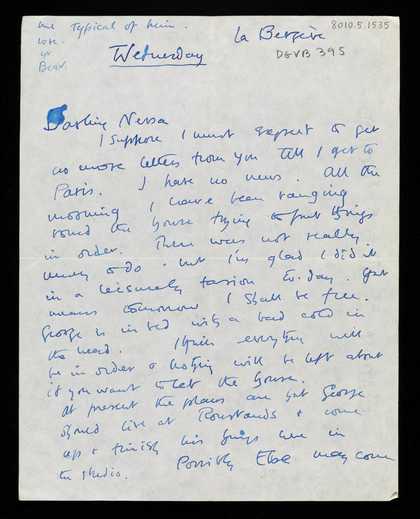 me Typical of him.
love.
yr
Bear.
8010.5.1535
La Bergère
DGVB 395
Wednesday
Darling Nessa
I suppose I must expect to get
no more letters from you till I get to
Paris. I have no news. All the
morning I have been ranging
round the house trying to put things
in order. There was not really
much to do. but I'm glad I did it
in a leisurely fashion to.day. That
means tomorrow I shall be free.
George is in bed with a bad cold in
the head. I think everything will
be in order & nothing will be left about
if you want to let the house.
At present the plans are that George
should live at & come
up & finish his things here in
the studio. Possibly Elsie may come